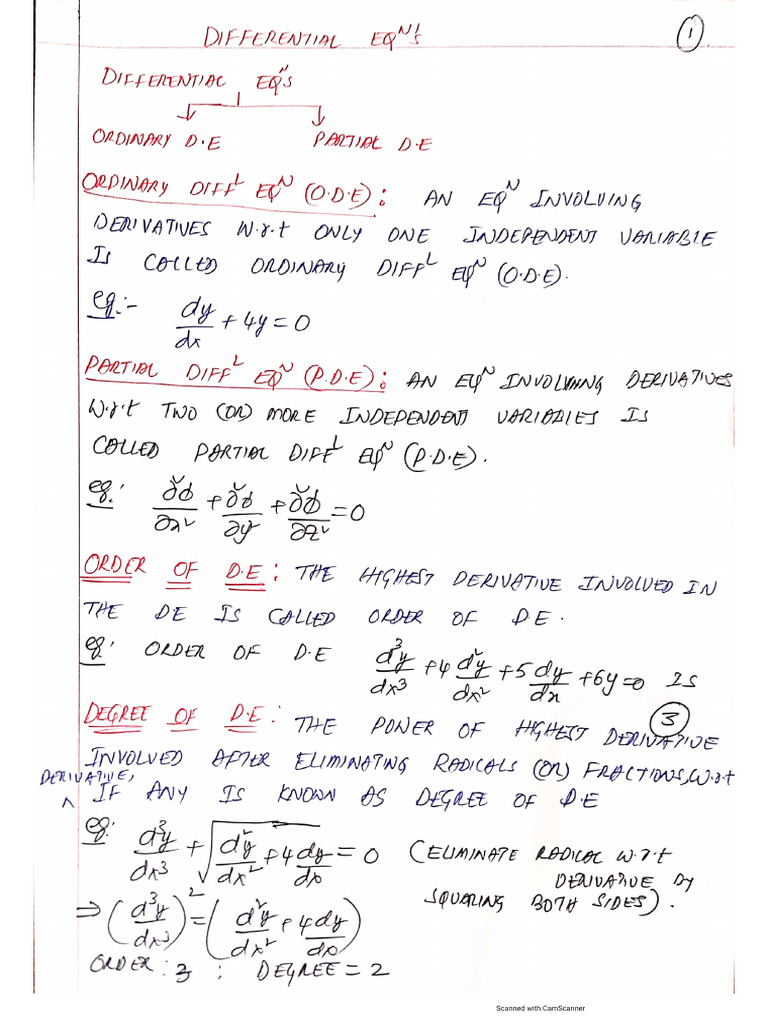 DIFFERENTIAL EQᴺ'S
①
DIFFERENTIAL EQᴺS
ORDINARY D.E PARTIAL D.E
ORDINARY DIFFᴸ EQᴺ (O.D.E): AN EQᴺ INVOLVING
DERIVATIVES W.r.t ONLY ONE INDEPENDENT VARIABLE
IS CALLED ORDINARY DIFFᴸ EQᴺ (O.D.E).
eg:- dy/dx + 4y = 0
PARTIAL DIFFᴸ EQᴺ (P.D.E): AN EQᴺ INVOLVING DERIVATIVES
W.r.t TWO (OR) MORE INDEPENDENT VARIABLES IS
CALLED PARTIAL DIFFᴸ EQᴺ (P.D.E).
eg: ∂²ϕ/∂x² + ∂²ϕ/∂y² + ∂²ϕ/∂z² = 0
ORDER OF D.E: THE HIGHEST DERIVATIVE INVOLVED IN
THE DE IS CALLED ORDER OF D.E.
eg: ORDER OF D.E d³y/dx³ + 4 d²y/dx² + 5 dy/dx + 6y = 0 IS
③
DEGREE OF D.E: THE POWER OF HIGHEST DERIVATIVE
INVOLVED AFTER ELIMINATING RADICALS (OR) FRACTIONS, W.r.t
DERIVATIVE,
^ IF ANY IS KNOWN AS DEGREE OF D.E
eg: d³y/dx³ + √(d²y/dx² + 4 dy/dx) = 0 (ELIMINATE RADICAL W.r.t
DERIVATIVE BY
SQUARING BOTH SIDES).
⇒ (d³y/dx³)² = (d²y/dx² + 4 dy/dx)
ORDER: 3 ; DEGREE = 2
Scanned with CamScanner